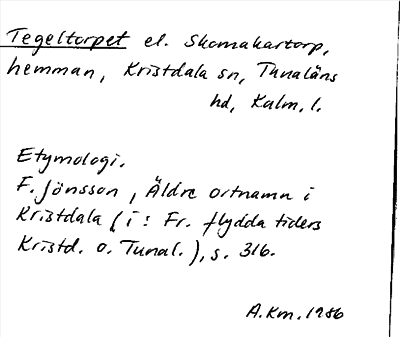 Tegeltorpet el. Skomakartorp,
hemman, Kristdala sn, Tunaläns
hd, Kalm. l.
Etymologi.
F. Jonsson, Äldre ortnamn i
Kristdala (i: Fr. flydda tiders
Kristd. o. Tunal.), s. 316.
A.Km. 1986